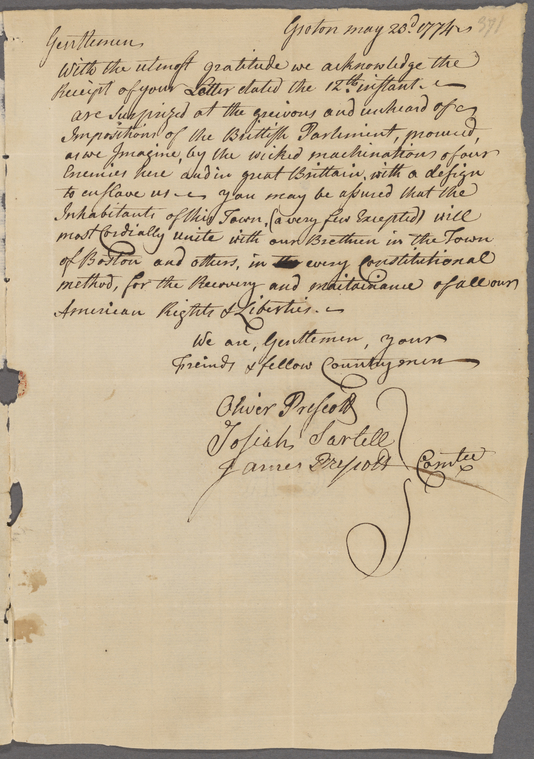 Groton may 23d 1774
371
Gentlemen
With the utmost gratitude we acknowledge the
Receipt of your Letter dated the 12th. instant.
are surprized at the greivous and unheard of
Impositions of the Brittish Parliment, procured
as we Imagine, by the wicked machinations of our
Enemies here and in great Brittain, with a design
to enslave us you may be assured that the
Inhabitants of this Town, (a very few Excepted) will
most Cordially unite with our Brethren in the Town
of Boston and others, in every Constitutional
method, for the Recovery and maintainance of all our
American Rights & Liberties.
We are, Gentlemen, your
Freinds & fellow Countrymen
Oliver Prescott
Josiah Sartell
James Prescott
Comtee